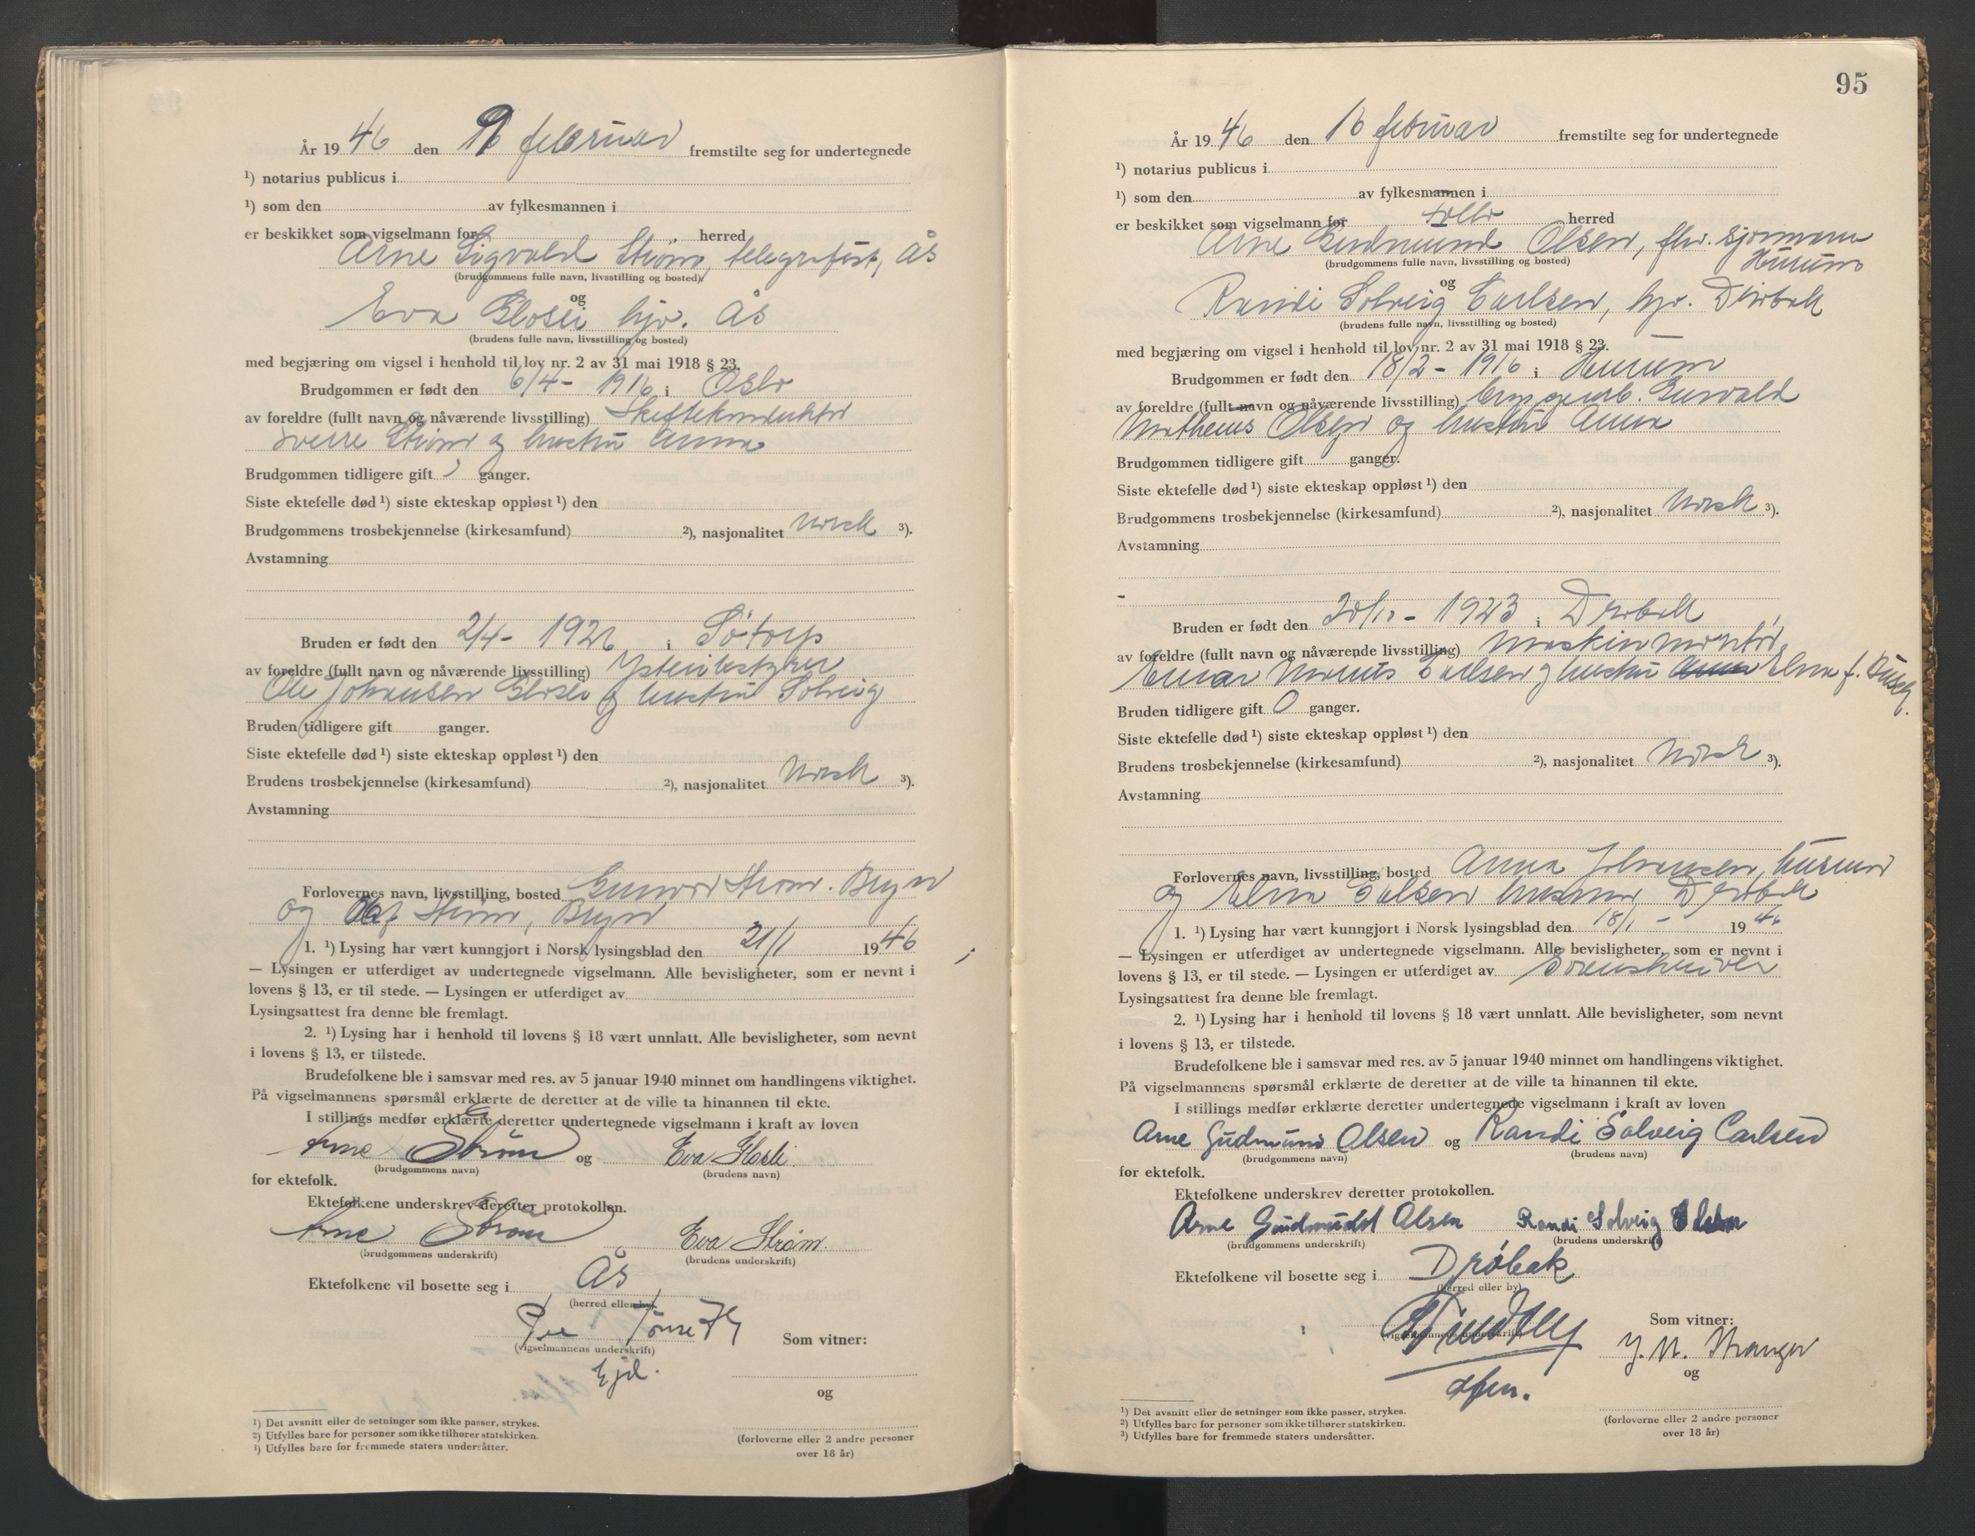 År 19 46 den 9 februar fremstilte seg for undertegnede
¹) notarius publicus i
¹) som den av fylkesmannen i
er beskikket som vigselmann for herred
Arne Sigvald Strøm, telegrafist, Ås
(brudgommens fulle navn, livsstilling og bosted)
og
Eva Glosli hjv. Ås
(brudens fulle navn, livsstilling og bosted)
med begjæring om vigsel i henhold til lov nr. 2 av 31 mai 1918 § 23.
Brudgommen er født den 6/4 - 1916 i Oslo
av foreldre (fullt navn og nåværende livsstilling) Skiftekonduktør
Sverre Strøm og hustru Anna
Brudgommen tidligere gift ganger.
Siste ektefelle død ¹) siste ekteskap oppløst ¹) den
Brudgommens trosbekjennelse (kirkesamfund) ²), nasjonalitet Norsk ³).
Avstamning
Bruden er født den 2/4 - 1926 i Søtorp
av foreldre (fullt navn og nåværende livsstilling) Ysteribestyrer
Ole Johansen Glosli og hustru Solveig
Bruden tidligere gift ganger.
Siste ektefelle død ¹) siste ekteskap oppløst ¹) den
Brudens trosbekjennelse (kirkesamfund) ²), nasjonalitet Norsk ³).
Avstamning
Forlovernes navn, livsstilling, bosted Gunvor Strøm. Bryn
og Olaf Strøm, Bryn
1. ¹) Lysing har vært kunngjort i Norsk lysingsblad den 21/1 19 46
— Lysingen er utferdiget av undertegnede vigselmann. Alle bevisligheter, som er nevnt i
lovens § 13, er til stede. — Lysingen er utferdiget av
Lysingsattest fra denne ble fremlagt.
2. ¹) Lysing har i henhold til lovens § 18 vært unnlatt. Alle bevisligheter, som nevnt
i lovens § 13, er tilstede.
Brudefolkene ble i samsvar med res. av 5 januar 1940 minnet om handlingens viktighet.
På vigselmannens spørsmål erklærte de deretter at de ville ta hinannen til ekte.
I stillings medfør erklærte deretter undertegnede vigselmann i kraft av loven
Arne Strøm og Eva Glosli.
(brudgommens navn) (brudens navn)
for ektefolk.
Ektefolkene underskrev deretter protokollen.
Arne Strøm Eva Strøm.
(brudgommens underskrift) (brudens underskrift)
Ektefolkene vil bosette seg i Ås
(herred eller by)
Som vitner:
(vigselmannens underskrift)
og
¹) Det avsnitt eller de setninger som ikke passer, strykes.
²) Utfylles bare for personer som ikke tilhører statskirken.
³) Utfylles bare for fremmede staters undersåtter.
(forloverne eller 2 andre personer
over 18 år)
95
År 19 46 den 16 februar fremstilte seg for undertegnede
¹) notarius publicus i
¹) som den av fylkesmannen i
er beskikket som vigselmann for Follo herred
Arne Gudmund Olsen, fhv. sjømann
Hurum
(brudgommens fulle navn, livsstilling og bosted)
og
Randi Solveig Carlsen, hjv. Drøbak
(brudens fulle navn, livsstilling og bosted)
med begjæring om vigsel i henhold til lov nr. 2 av 31 mai 1918 § 23.
Brudgommen er født den 18/2 - 1916 i Hurum
av foreldre (fullt navn og nåværende livsstilling) bryggearb. Gunvald
Matheus Olsen og hustru Anna
Brudgommen tidligere gift ganger.
Siste ektefelle død ¹) siste ekteskap oppløst ¹) den
Brudgommens trosbekjennelse (kirkesamfund) ²), nasjonalitet Norsk ³).
Avstamning
Bruden er født den 30/10 - 1923 i Drøbak
av foreldre (fullt navn og nåværende livsstilling) Maskinmontør
Einar Carlsen og hustru Elna f. Busch.
Bruden tidligere gift 0 ganger.
Siste ektefelle død ¹) siste ekteskap oppløst ¹) den
Brudens trosbekjennelse (kirkesamfund) ²), nasjonalitet Norsk ³).
Avstamning
Forlovernes navn, livsstilling, bosted Anna Johansen, Hurum
og Elna Carlsen Drøbak
1. ¹) Lysing har vært kunngjort i Norsk lysingsblad den 18/1 - 19 46
— Lysingen er utferdiget av undertegnede vigselmann. Alle bevisligheter, som er nevnt i
lovens § 13, er til stede. — Lysingen er utferdiget av Sorenskriver
Lysingsattest fra denne ble fremlagt.
2. ¹) Lysing har i henhold til lovens § 18 vært unnlatt. Alle bevisligheter, som nevnt
i lovens § 13, er tilstede.
Brudefolkene ble i samsvar med res. av 5 januar 1940 minnet om handlingens viktighet.
På vigselmannens spørsmål erklærte de deretter at de ville ta hinannen til ekte.
I stillings medfør erklærte deretter undertegnede vigselmann i kraft av loven
Arne Gudmund Olsen og Randi Solveig Carlsen
(brudgommens navn) (brudens navn)
for ektefolk.
Ektefolkene underskrev deretter protokollen.
Arne Gudmund Olsen Randi Solveig Olsen
(brudgommens underskrift) (brudens underskrift)
Ektefolkene vil bosette seg i Drøbak
(herred eller by)
Som vitner:
(vigselmannens underskrift)
og
¹) Det avsnitt eller de setninger som ikke passer, strykes.
²) Utfylles bare for personer som ikke tilhører statskirken.
³) Utfylles bare for fremmede staters undersåtter.
(forloverne eller 2 andre personer
over 18 år)